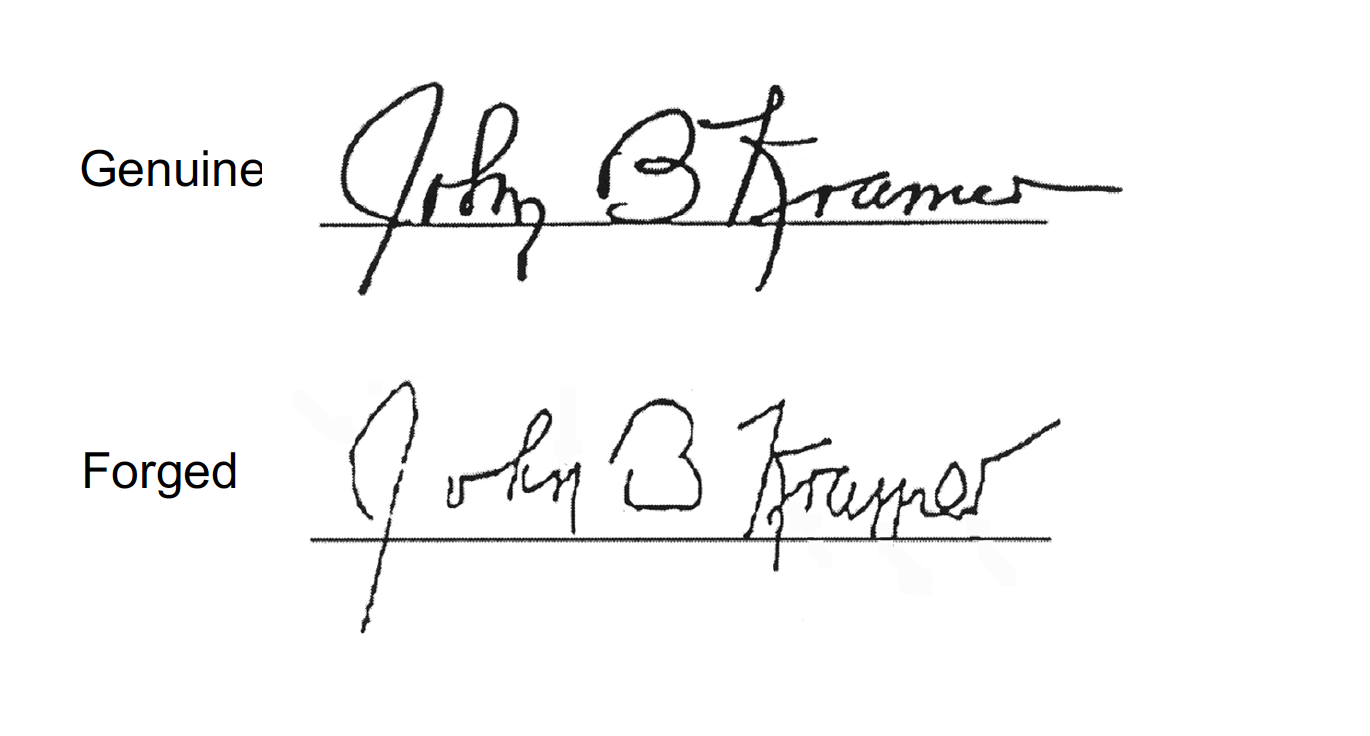 Genuine John B Kramer
Forged John B Kramer